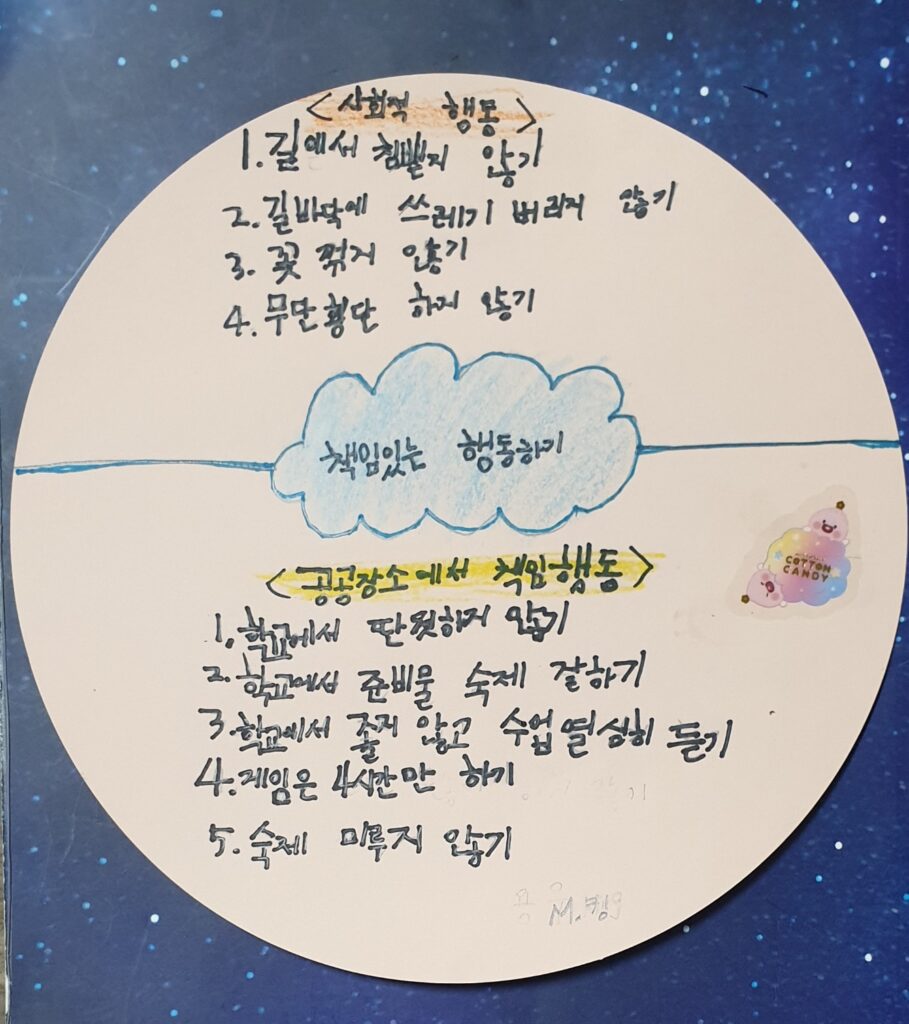 <사회적 행동>
1. 길에서 침뱉지 않기
2. 길바닥에 쓰레기 버리지 않기
3. 꽃 꺾지 않기
4. 무단횡단 하지 않기
책임있는 행동하기
<공공장소에서 책임행동>
COTTON
CANDY
1. 학교에서 딴짓하지 않기
2. 학교에서 준비물 숙제 잘하기
3. 학교에서 졸지 않고 수업열심히 듣기
4. 게임은 4시간만 하기
5. 숙제 미루지 않기
M.킹